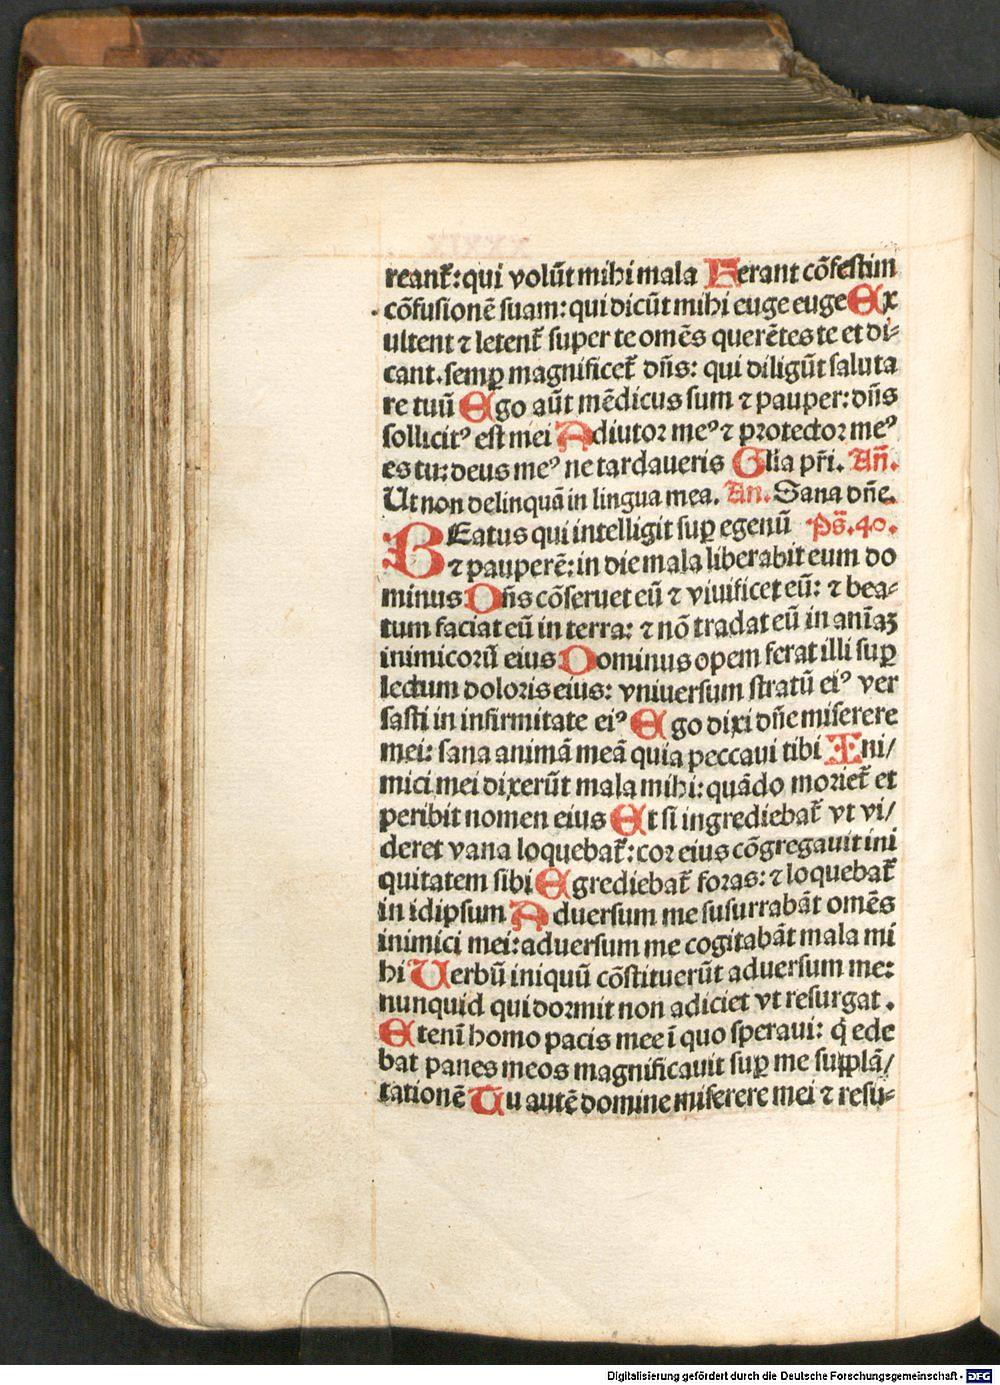 reant᷑: qui volūt mihi mala Ferant cōfestim
cōfusionē suam: qui dicūt mihi euge euge Ex
ultent ⁊ letent᷑ super te omēs querētes te et di-
cant. semꝑ magnificet᷑ dn̄s: qui diligūt saluta
re tuū Ego aūt mēdicus sum ⁊ pauper: dn̄s
sollicitꝰ est mei Adiutor meꝰ ⁊ protector meꝰ
es tu: deus meꝰ ne tardaveris Glia pr̄i. An̄.
Ut non delinquā in lingua mea. An. Sana dn̄e.
BEatus qui intelligit suꝑ egenū Ps̄. 40.
⁊ pauperē: in die mala liberabit eum do
minus Dn̄s cōseruet eū ⁊ viuificet eū: ⁊ bea-
tum faciat eū in terra: ⁊ nō tradat eū in anīaꝫ
inimicorū eius Dominus opem ferat illi suꝑ
lectum doloris eius: vniuersum stratū eiꝰ ver
sasti in infirmitate eiꝰ Ego dixi dn̄e miserere
mei: sana animā meā quia peccaui tibi Ini/
mici mei dixerūt mala mihi: quādo moriet᷑ et
peribit nomen eius Et si ingrediebat᷑ vt vi/
deret vana loquebat᷑: cor eius cōgregauit ini
quitatem sibi Egrediebat᷑ foras: ⁊ loquebat᷑
in idipsum Aduersum me susurrabāt omēs
inimici mei: aduersum me cogitabāt mala mi
hi Uerbū iniquū cōstituerūt aduersum me:
nunquid qui dormit non adiciet vt resurgat.
Etenī homo pacis mee ī quo speraui: q̇ ede
bat panes meos magnificauit suꝑ me supplā/
tationē Tu autē domine miserere mei ⁊ resu-
Digitalisierung gefördert durch die Deutsche Forschungsgemeinschaft - DFG